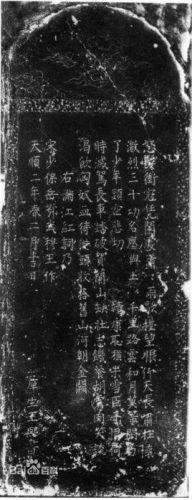 怒髮衝冠憑闌處蕭 雨歇擡望眼仰天長嘯壯懷
激烈三十功名塵與土 千里路雲和月莫等閑
了少年頭空悲切 靖康恥猶未雪臣子 何
時滅駕長車踏破賀蘭山缺壯志飢餐胡虜肉笑
渴飲匈奴血待從頭收拾舊山河朝金闕
右滿江紅詞乃
宋少保岳鄂武穆王作
天順二年春二月吉日 庠生王熙